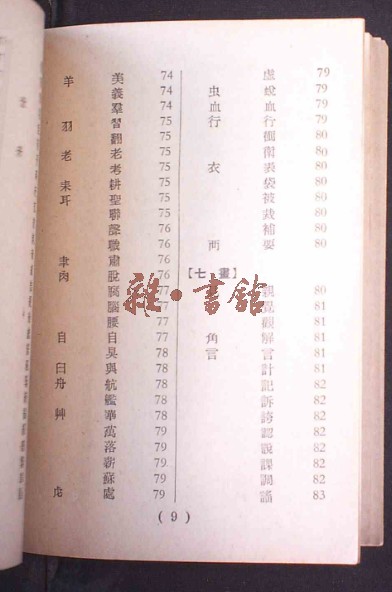 羊 美 74
義 74
羣 74
羽 習 75
翻 75
老 老 75
考 75
耒 耕 75
耳 聖 75
聯 75
聲 76
職 76
聿 肅 76
肉 脫 76
77
腦 77
腰 77
自 自 77
78
臼 與 78
舟 航 78
艦 78
艸 華 78
萬 79
落 79
79
蘇 79
虍 處 79
虛 79
虫 79
血 血 79
行 行 79
80
80
衣 80
袋 80
被 80
裁 80
補 80
襾 要 80
【七 畫】
80
81
觀 81
角 解 81
言 言 81
計 82
記 82
訴 82
誇 82
認 82
說 82
課 82
調 82
謠 83
( 9 )
雜·書館